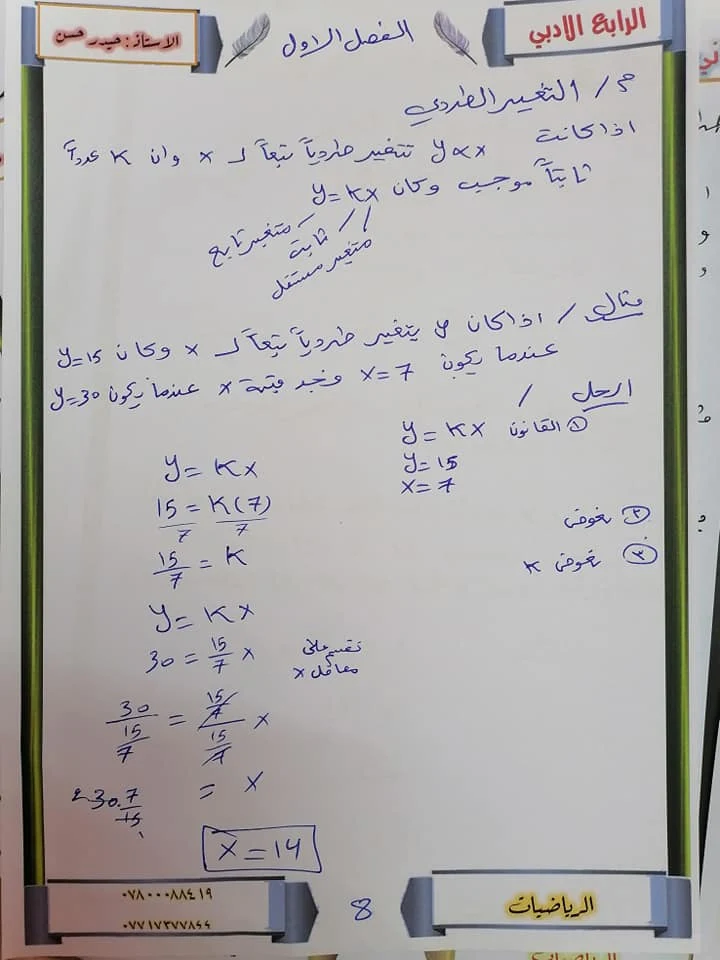 الرابع الادبي
الفصل الاول
الاستاذ: حيدر حسن
م/ التغير الطردي
اذا كانت y∝x تتغير طردياً تبعاً لـ x وان K عدداً
ثابتاً موجب وكان y=Kx
متغير تابع
ثابت
متغير مستقل
مثال / اذا كان y يتغير طردياً تبعاً لـ x وكان y=15
عندما يكون x=7 فجد قيمة x عندما يكون y=30
الحل /
① القانون y=Kx
y=15
x=7
② نعوض
③ نعوض K
y=Kx
15/7 = K(7)/7
15/7 = K
y=Kx
30 = 15/7 x
نقسم على
معامل x
30/(15/7) = (15/7)/(15/7) x
2 30.7/15 = x
1
x=14
الرياضيات
8
٠٧٨٠٠٠٨٨٤١٩
٠٧٧١٧٣٧٧٨٤٤